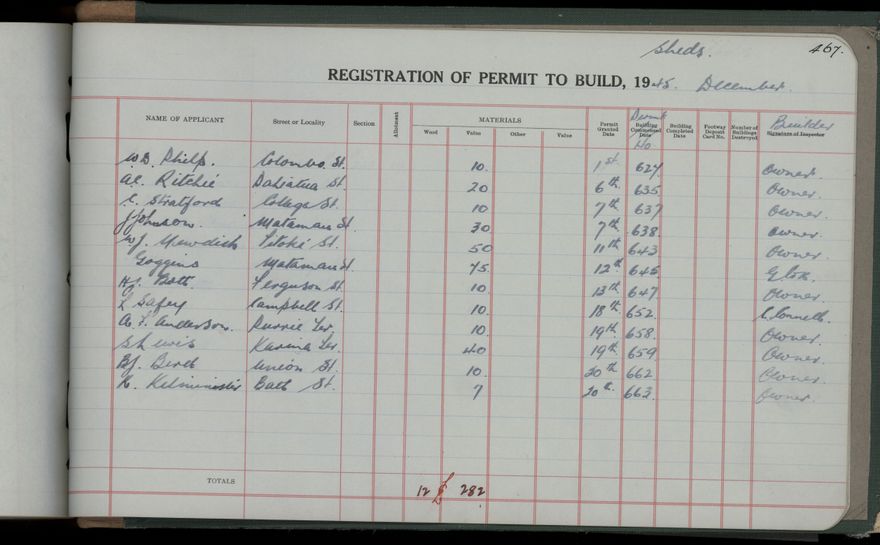 Sheds. 467.
REGISTRATION OF PERMIT TO BUILD, 1945. December.
NAME OF APPLICANT Street or Locality Section Allotment MATERIALS Wood Value Other Value Permit Granted Date Permit No Building Commenced Date Building Completed Date Footway Deposit Card No. Number of Buildings Destroyed Builder Signature of Inspector
W.D. Phelps. Colombo St. 10. 1st. 627. Owner.
A.C. Ritchie Dahiatua St. 20 6th. 635. Owner.
C. Stratford College St. 10 7th 637 Owner.
J Johnson. Matamau St. 30 7th. 638. Owner.
W.J. Mewdick Titoki St. 50 11th 643 Owner.
Goggins Matamau St. 75. 12th 646
Bott. Ferguson St. 10 13th 647. Owner.
L Safey Campbell St. 10. 18th 652. C. Connell.
A. F. Anderson. Currie Ter. 10. 19th 658. Owner.
S Lewis Karina Ter. 40 19th. 659. Owner.
B.J. Berck Union St. 10. 20th. 662 Owner.
K. Kelminister Bath St. 7 20th. 663. Owner.
TOTALS 12 £ 282